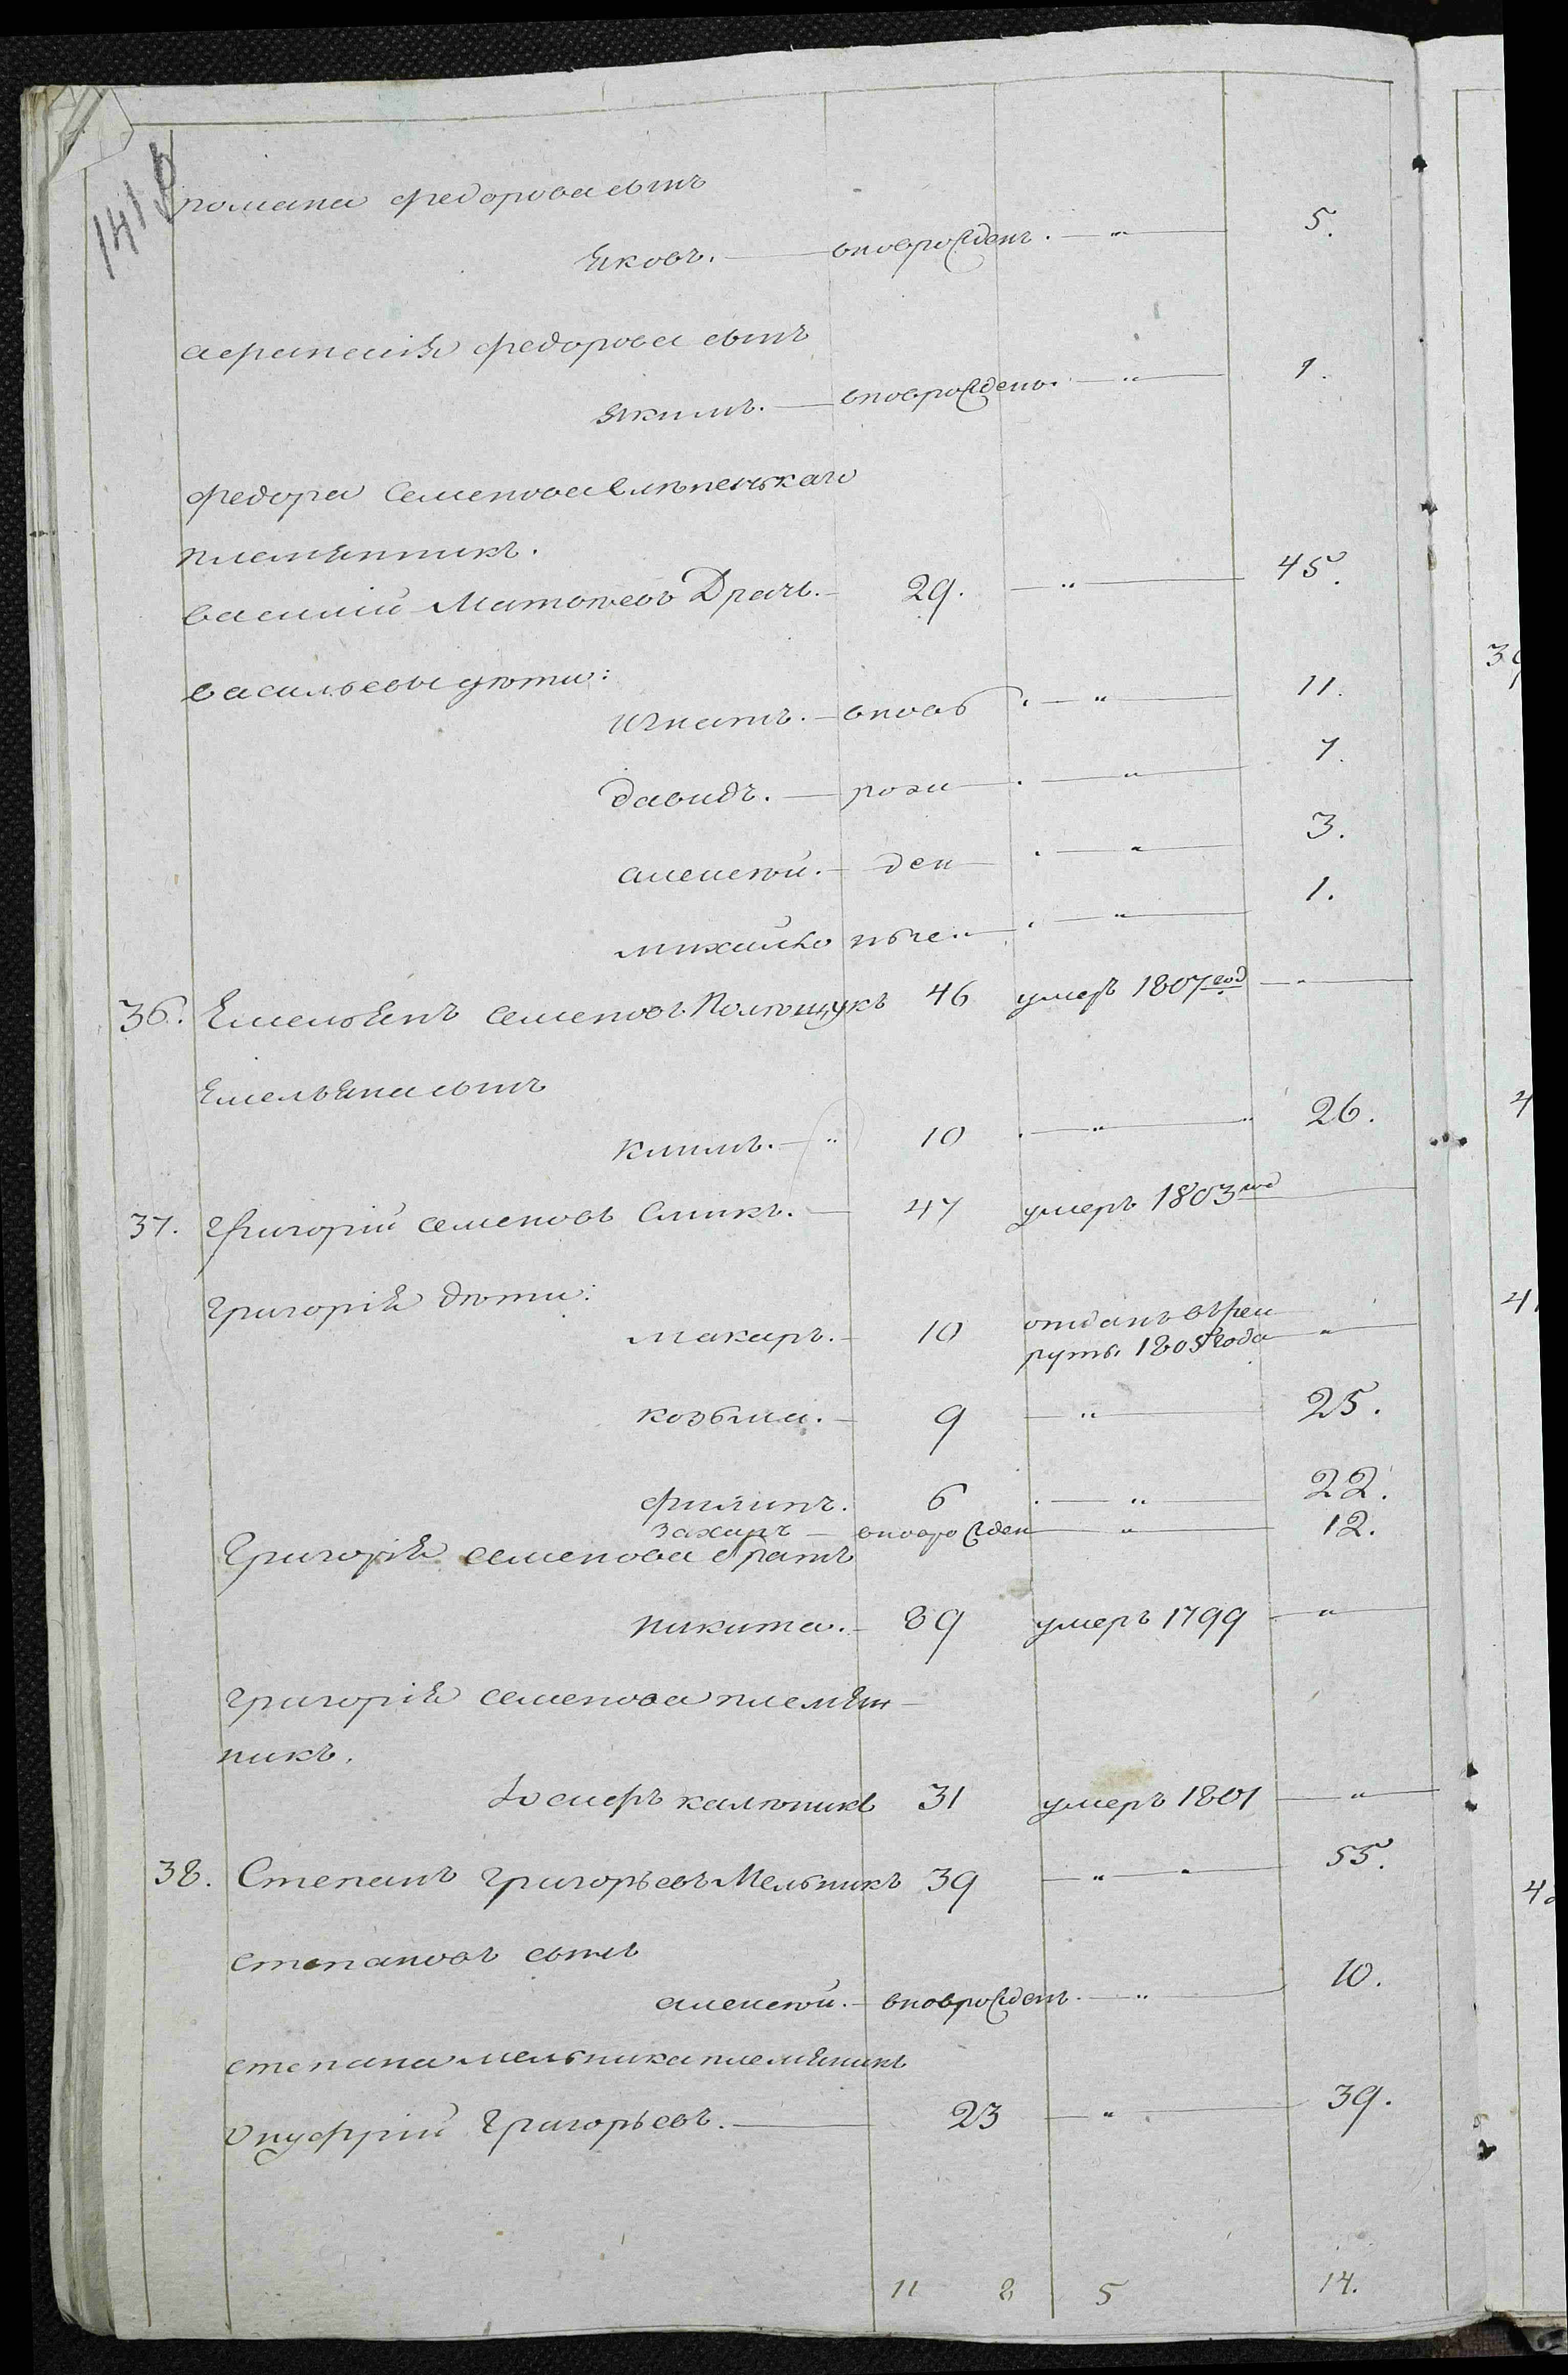 141
романа федорова сынъ
яковъ. вновьрожденъ. " 5.
афанасія федорова сынъ
якимъ. вновьрожденъ. " 1.
федора Семенова Слѣпенькаго
племянникъ.
василій Матвѣевъ Драчь. 29. " 45.
васильевы дѣти:
игнатъ. вновь " 11.
давидъ. рож " 7.
алексѣй. ден " 3.
михайло ные " 1.
36. Емельянъ семеновъ Полѣщукъ 46 умеръ 1807 год "
Емельяна сынъ
климъ. " 10 " 26.
37. Григорій семеновъ Слика. 47 умеръ 1803 год
григорія дѣти:
макаръ. 10 отданъ врек
рутъ. 1805 года "
козьма. 9 " 25.
филипъ. 6 " 22.
захаръ вноврожден " 12.
Григорія семенова братъ
никита. 39 умеръ 1799 "
григорія семенова племян
никъ.
Іосифъ калѣника 31 умеръ 1801 "
38. Степанъ григорьевъ Мельникъ 39 " 55.
степановъ сынъ
алексѣй. вноврожденъ. " 10.
степана мельника племяникъ
Онуфрій григорьевъ. 23 " 39.
11 8 5 14.